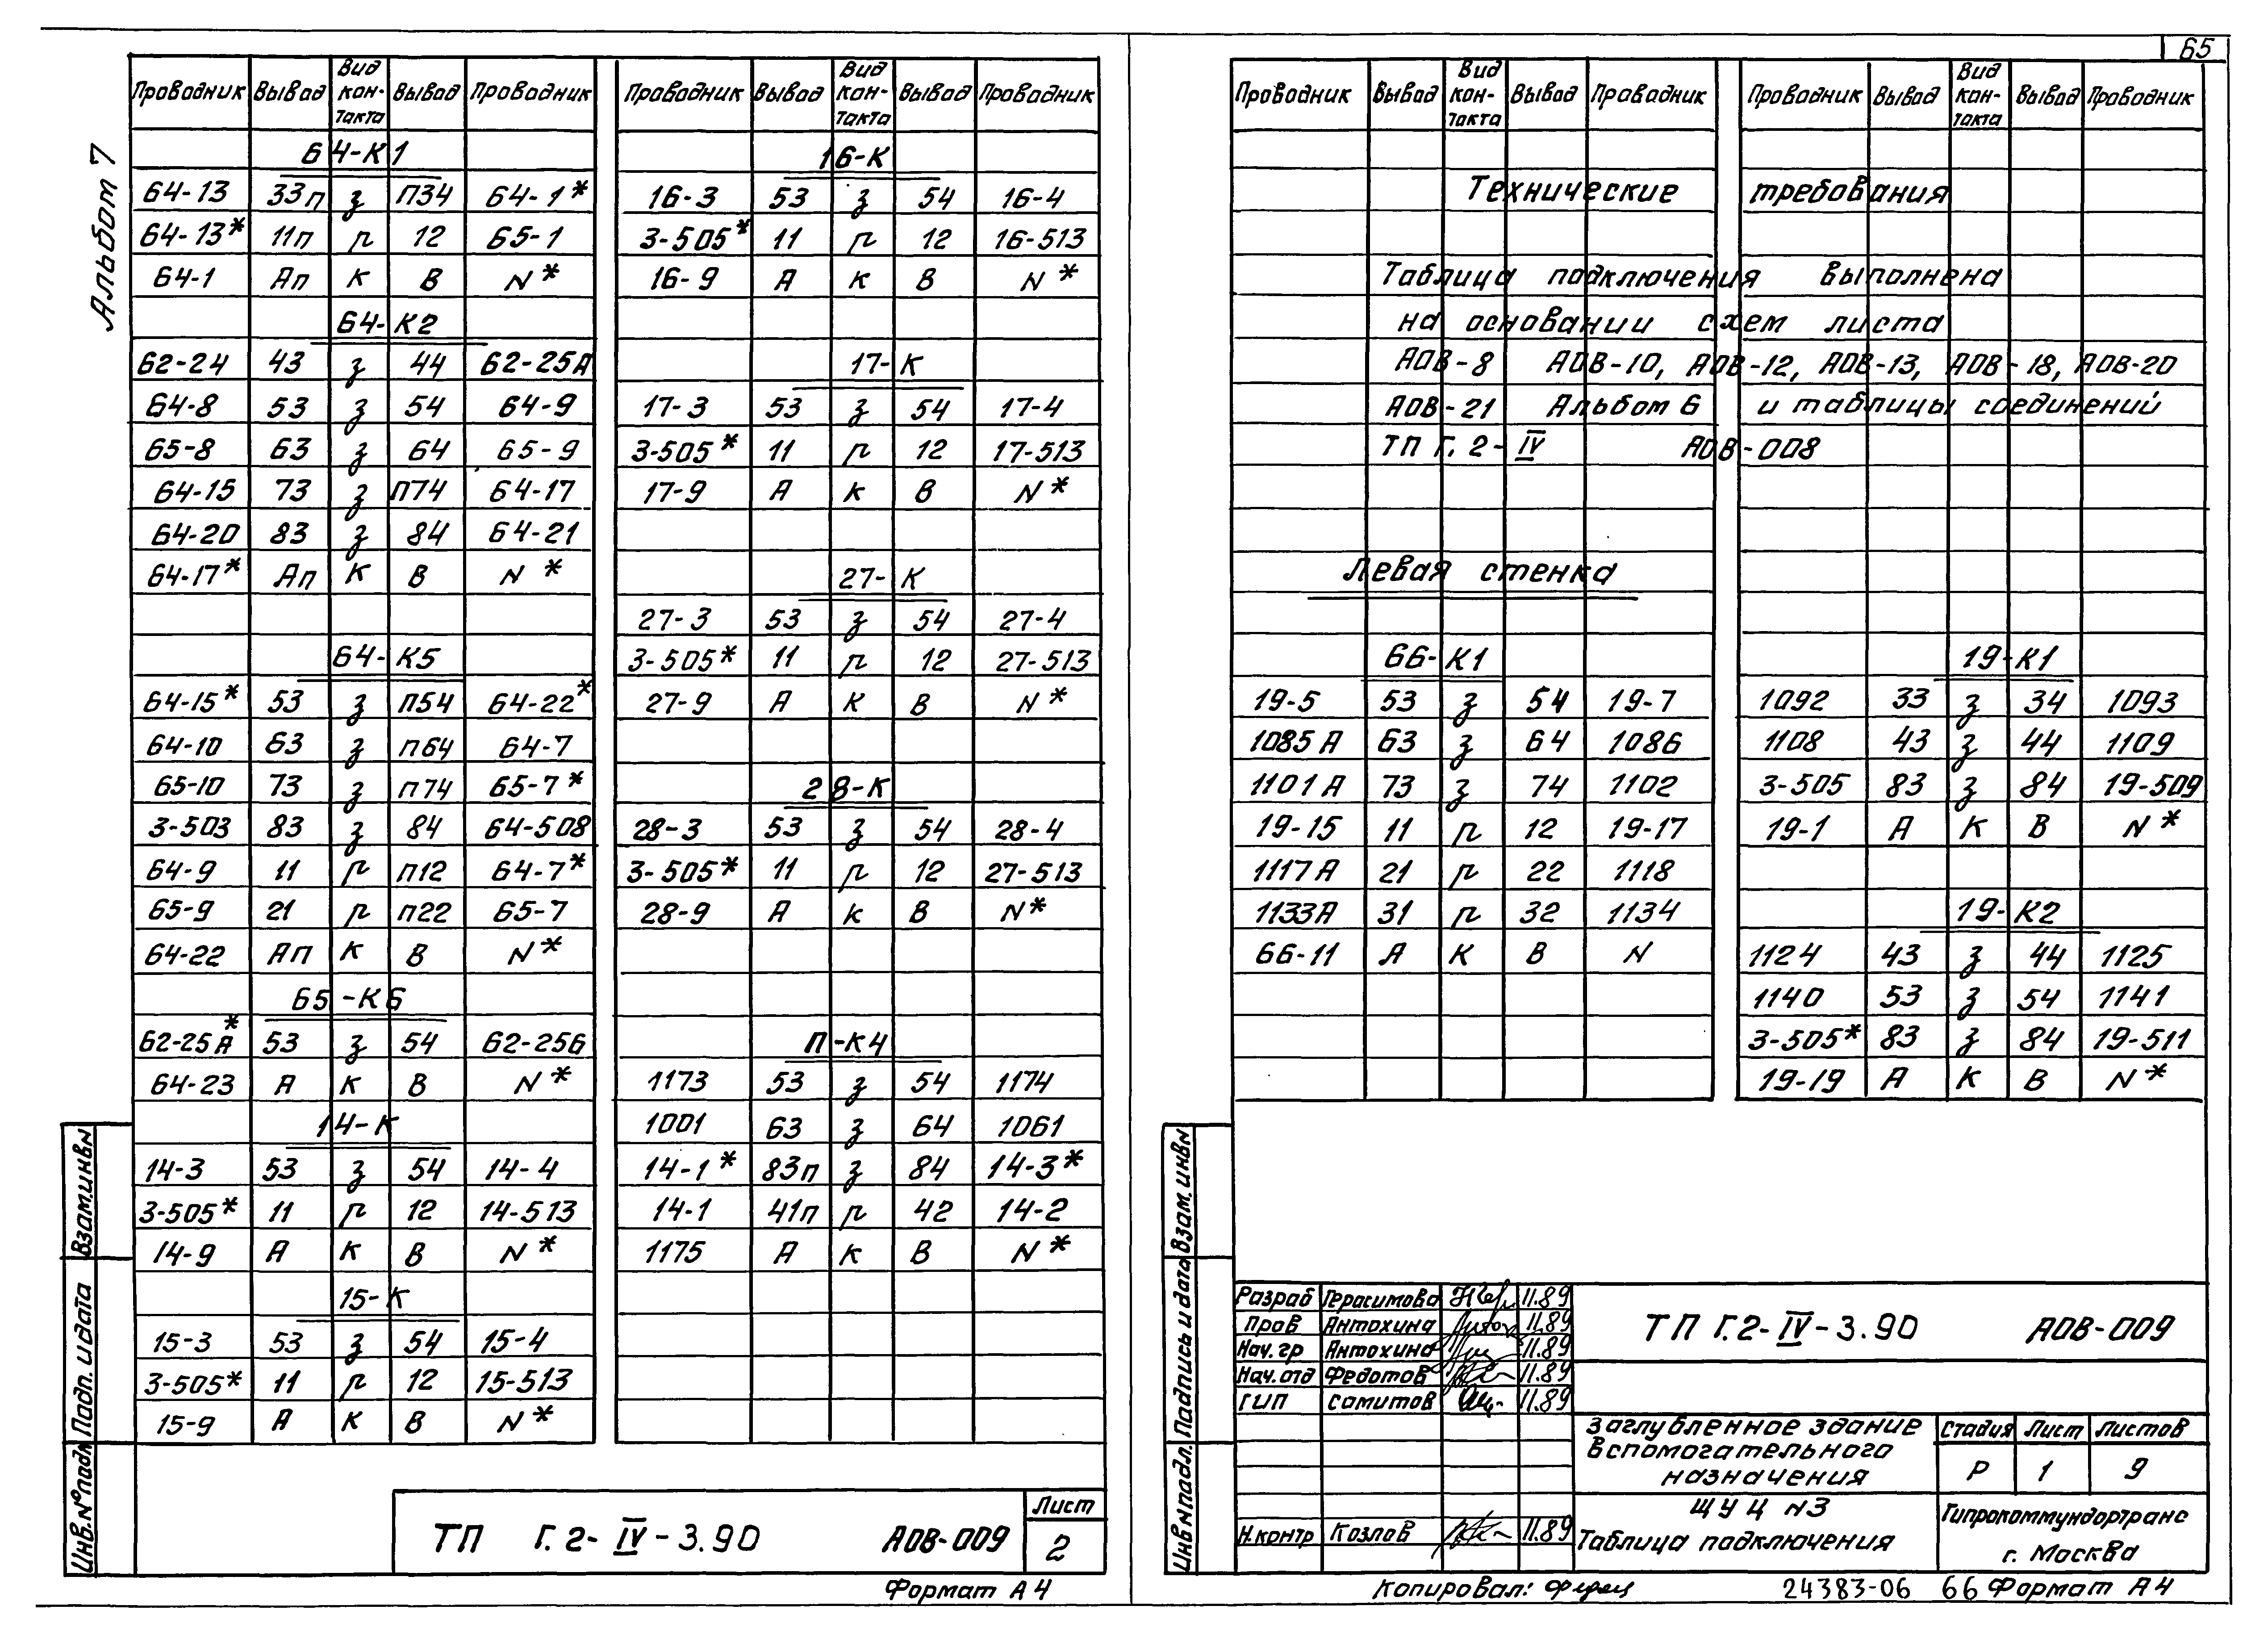 65
Альбом 7
Проводник Вывод Вид контакта Вывод Проводник
64-К1
64-13 33п з п34 64-1*
64-13* 11п р 12 65-1
64-1 Ап К В N*
64-К2
62-24 43 з 44 62-25А
64-8 53 з 54 64-9
65-8 63 з 64 65-9
64-15 73 з п74 64-17
64-20 83 з 84 64-21
64-17* Ап К В N*
64-К5
64-15* 53 з п54 64-22*
64-10 63 з п64 64-7
65-10 73 з п74 65-7*
3-503 83 з 84 64-508
64-9 11 р п12 64-7*
65-9 21 р п22 65-7
64-22 Ап К В N*
65-К6
62-25А* 53 з 54 62-25б
64-23 А К В N*
14-К
14-3 53 з 54 14-4
3-505* 11 р 12 14-513
14-9 А К В N*
15-К
15-3 53 з 54 15-4
3-505* 11 р 12 15-513
15-9 А К В N*
Проводник Вывод Вид контакта Вывод Проводник
16-К
16-3 53 з 54 16-4
3-505* 11 р 12 16-513
16-9 А К В N*
17-К
17-3 53 з 54 17-4
3-505* 11 р 12 17-513
17-9 А К В N*
27-К
27-3 53 з 54 27-4
3-505* 11 р 12 27-513
27-9 А К В N*
28-К
28-3 53 з 54 28-4
3-505* 11 р 12 27-513
28-9 А К В N*
П-К4
1173 53 з 54 1174
1001 63 з 64 1061
14-1* 83п з 84 14-3*
14-1 41п р 42 14-2
1175 А К В N*
Взам.инв№
Подп. и дата
Инв.№подл
ТП Г.2-IV-3.90 АОВ-009
Лист
2
Формат А4
Проводник Вывод Вид контакта Вывод Проводник
Проводник Вывод Вид контакта Вывод Проводник
Технические требования
Таблица подключения выполнена
на основании схем листа
АОВ-8 АОВ-10, АОВ-12, АОВ-13, АОВ-18, АОВ-20
АОВ-21 Альбом 6 и таблицы соединений
ТП Г.2-IV АОВ-008
Левая стенка
66-К1
19-5 53 з 54 19-7
1085А 63 з 64 1086
1101А 73 з 74 1102
19-15 11 р 12 19-17
1117А 21 р 22 1118
1133А 31 р 32 1134
66-11 А К В N
19-К1
1092 33 з 34 1093
1108 43 з 44 1109
3-505 83 з 84 19-509
19-1 А К В N*
19-К2
1124 43 з 44 1125
1140 53 з 54 1141
3-505* 83 з 84 19-511
19-19 А К В N*
Взам.инв№
Подпись и дата
Инв№подл.
Разраб Герасимова 11.89
Пров Антохина 11.89
Нач.гр Антохина 11.89
Нач.отд Федотов 11.89
ГИП Самитов 11.89
Н.контр Козлов 11.89
ТП Г.2-IV-3.90 АОВ-009
Заглубленное здание
вспомогательного
назначения
Стадия Лист Листов
Р 1 9
ЩУЦ N3
Таблица подключения
Гипрокоммундортранс
г. Москва
Копировал:
24383-06 66 Формат А4